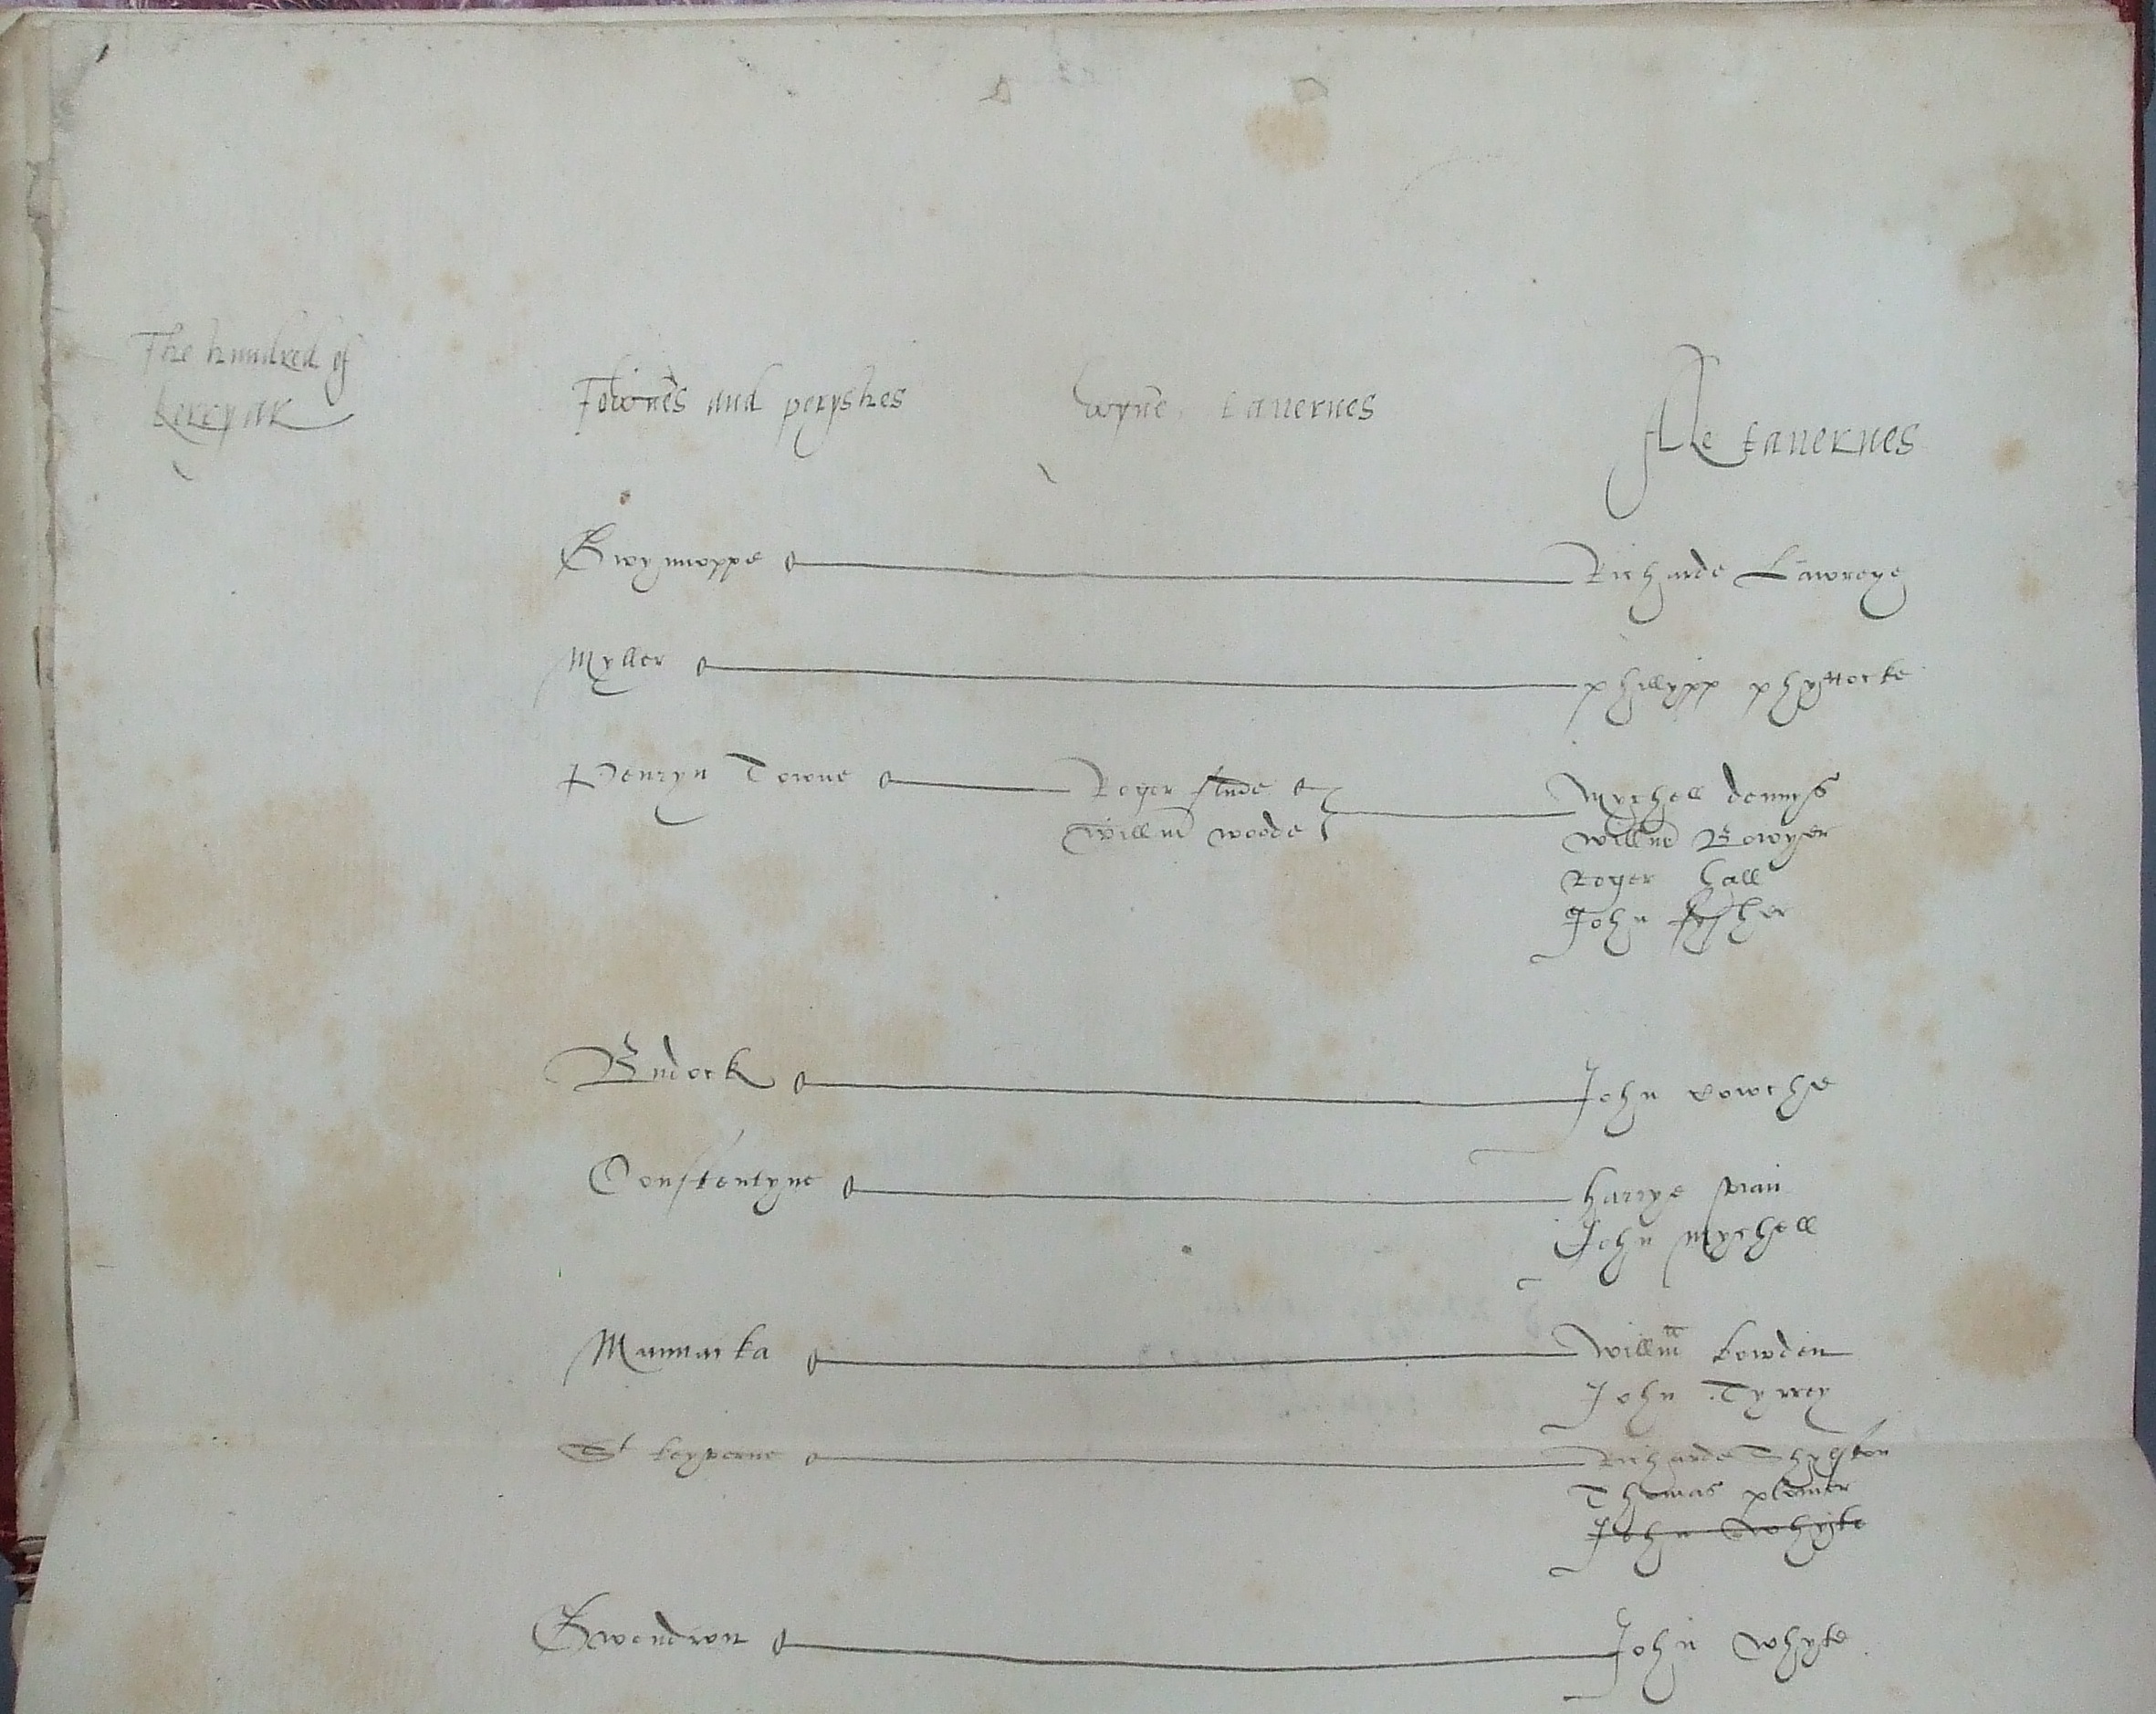 The hundred of
kerryar
Townes and peryshes
wyne tauernes
Ale tauernes
Gwynnoppe
Richarde Lawreye
Myller
phillypp phyttocke
Penryn Towne
Roger
Mychell dennys
Willm woode
Willm Bowyer
Roger hall
John fyssher
Budock
John rowche
Constentyne
harrye
John Mychell
Mannacka
Willm Lowden
John Tyrrey
St keyverne
Richarde
Thomas plomer
John Whyte
Gwendron
John Whyte